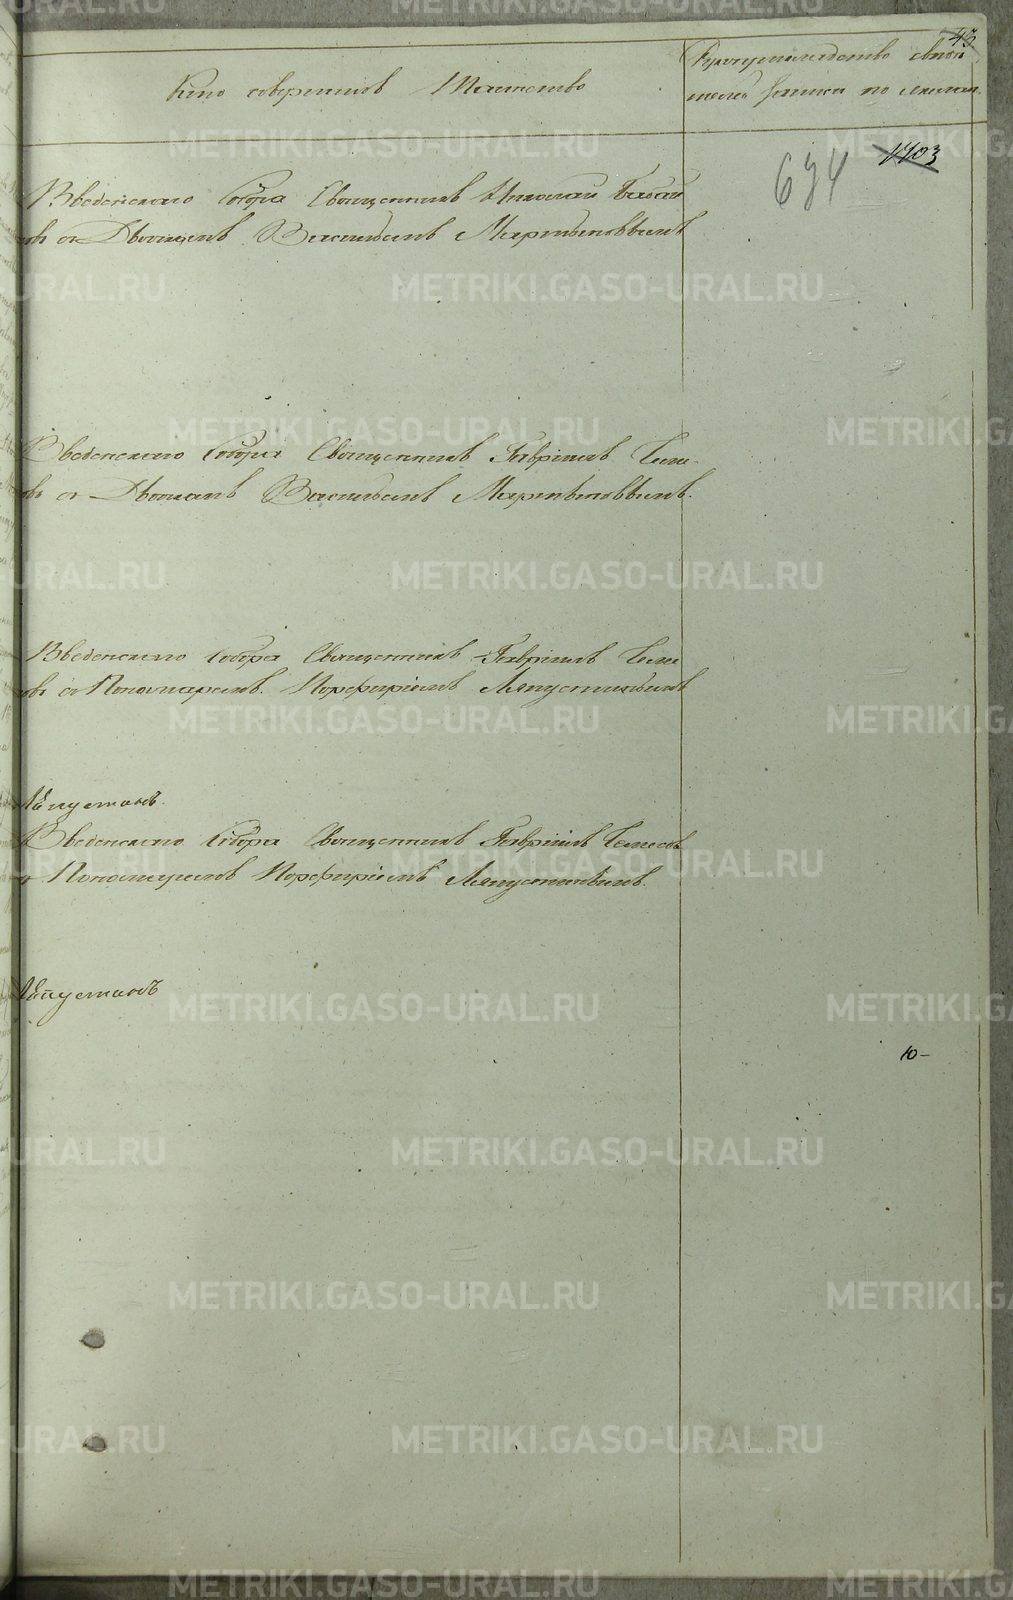 43
Кто совершилъ Таинство
Рукоприкладство свидѣ
телей записи по желан.
1103
694
Введенскаго Собора Священникъ Николай
въ съ Дьячкомъ Васильемъ Мартыновымъ
Введенскаго Собора Священникъ Гавріилъ
въ съ Дьячкомъ Васильемъ Мартыновымъ.
Введенскаго Собора Священникъ Гавріилъ
въ съ Пономаремъ Порфиріемъ Ляпустинымъ
Ляпустинъ.
Введенскаго Собора Священникъ Гавріилъ
Пономаремъ Порфиріемъ Ляпустинымъ.
Ляпустинъ
10-
METRIKI.GASO-URAL.RU